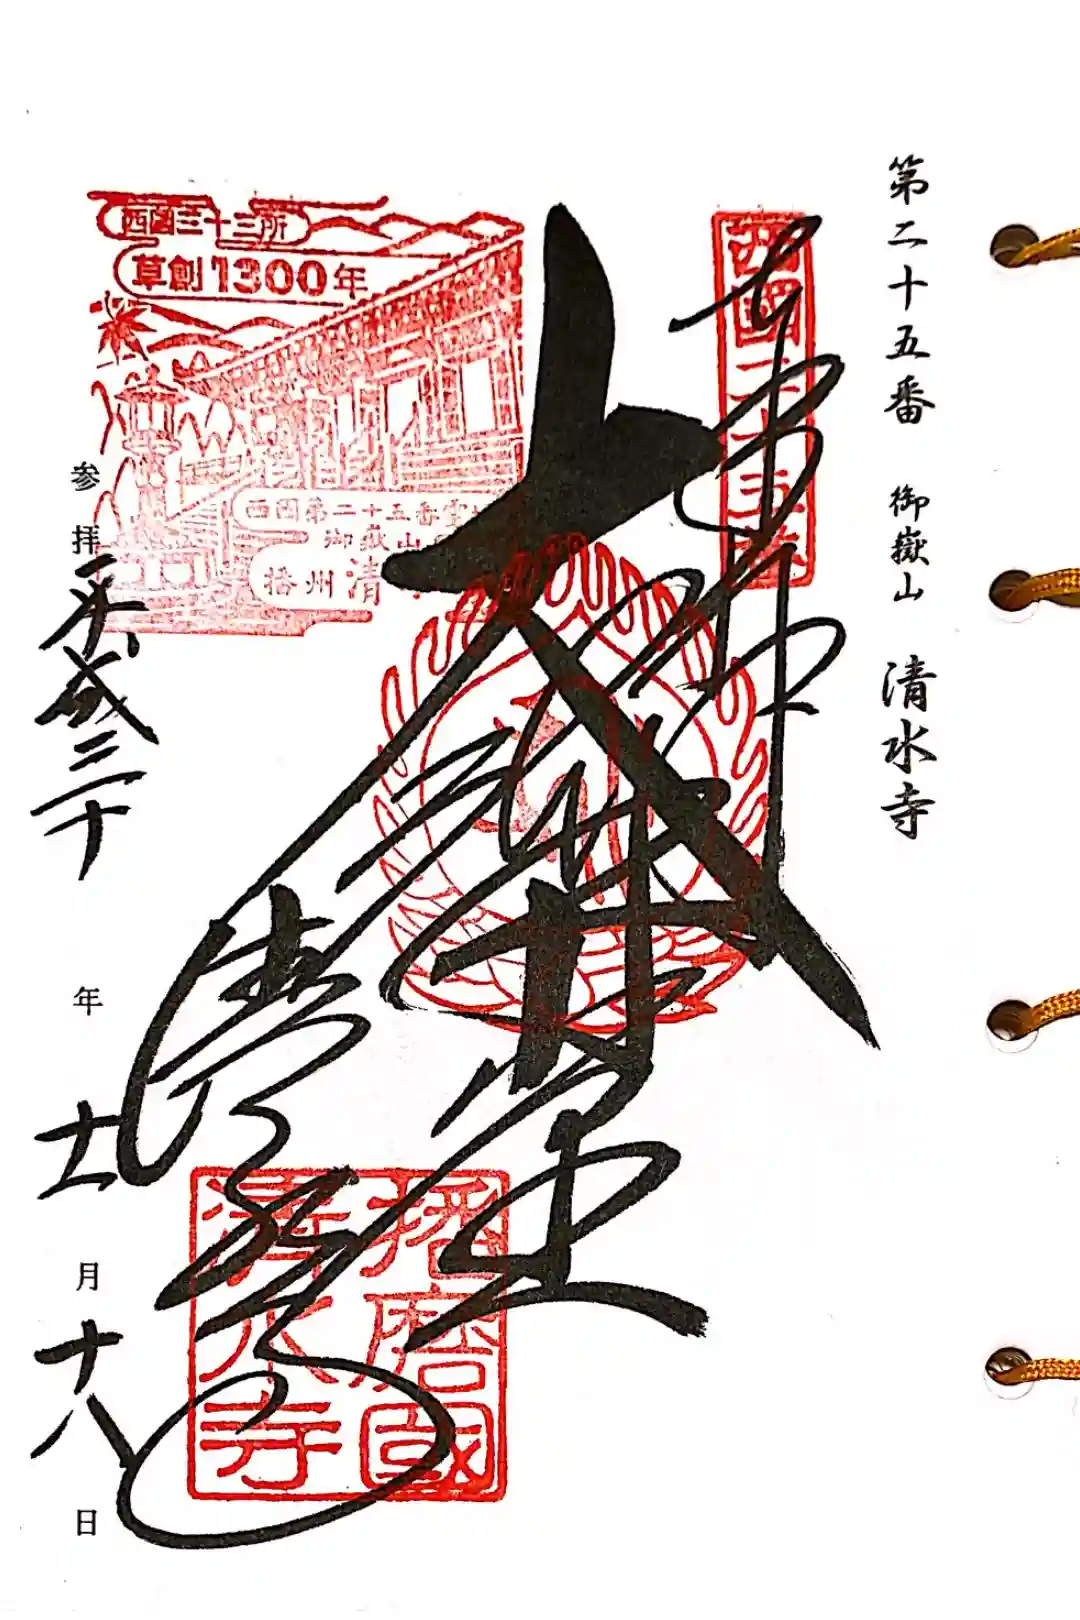 第二十五番 御嶽山 清水寺
西國二十五番
奉拝
大講堂
清水寺
西国三十三所
草創1300年
西国第二十五番
御嶽山
播州清
播磨国
清水寺
参拝平成三十年十一月十八日